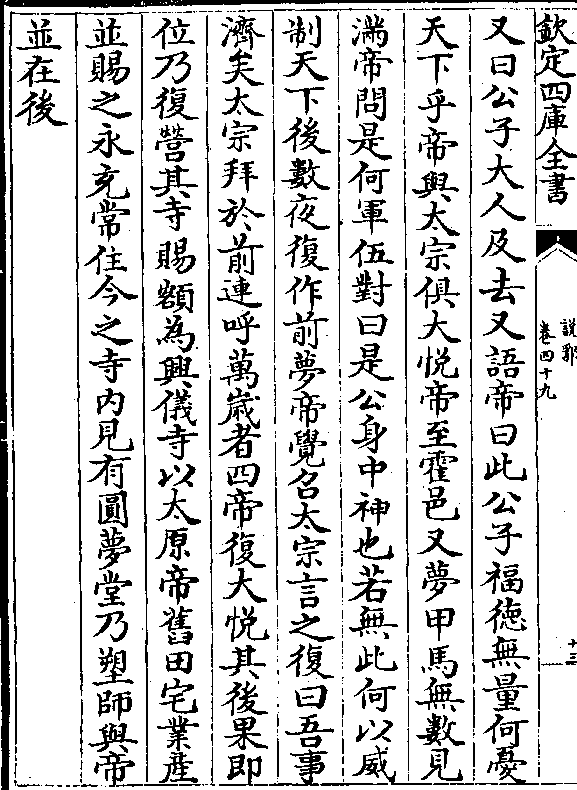 欽定四庫全書
說郛
卷四十九
十三
又曰公子大人及去又語帝曰此公子福徳無量何憂
天下乎帝與太宗俱大悦帝至霍邑又夢甲馬無數見
滿帝問是何軍伍對曰是公身中神也若無此何以威
制天下後數夜復作前夢帝覺召太宗言之復曰吾事
濟矣太宗拜於前連呼萬歳者四帝復大悦其後果即
位乃復營其寺賜額為興儀寺以太原帝舊田宅業産
並賜之永充常住今之寺内見有圓夢堂乃塑師與帝
並在後